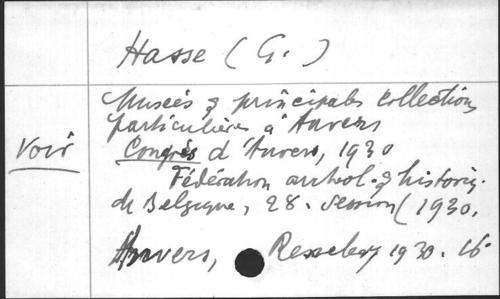 Hasse (G.)
Musées & principales collections
particulières à Anvers
Voir Congrès d'Anvers, 1930
Fédération archéol. & historiq.
de Belgique, 28. session (1930.
Anvers, 1930. 16